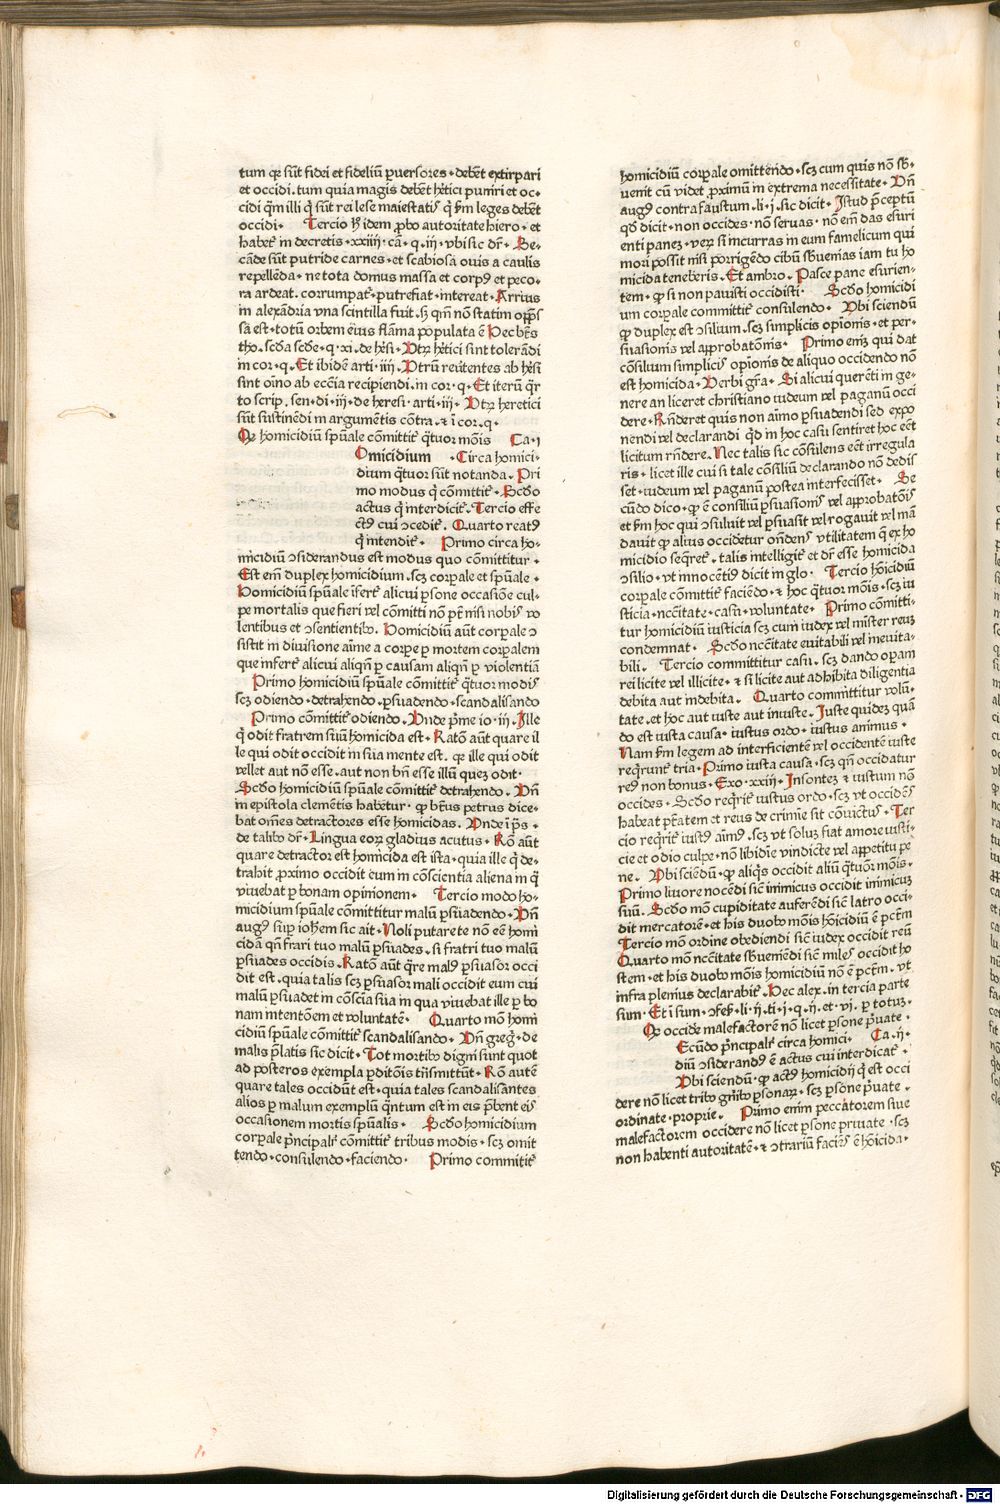 tum qꝛ sūt fidei et fideliū ꝑuersores · debēt extirpari
et occidi . tum quia magis debēt h̄etici puniri et oc-
cidi q̄m illi q̄ sūt rei lese maiestatꝭ q̄ ẜm leges debēt
occidi · Tercio hͦ idem ꝓbo autoritate hiero · et
habet᷑ in decretis · xxiiij · cā · q · iij · vbi sic dr̄ · Re-
cāde sūt putride carnes · et scabiosa ouis a caulis
repellēda · ne tota domus massa et corpꝰ et peco-
ra ardeat . corrumpat᷑ · putrefiat · intereat · Arrius
in alexādria vna scintilla fuit . sꝫ qm̄ nō statim opp̄s
sa est · totū orbem eius flāma populata ē Hec bt̄s
tho . scd̄a scd̄e · q · xi · de h̄esi · Vtꝝ h̄etici sint tolerādi
in cor · q · Et ibidē arti · iiij · Vtrū reūtentes ab h̄esi
sint oīno ab ecc̄ia recipiendi . in cor · q · Et iterū q̄r
to scrip . sen · di · iij · de heresi · arti · iij · Vtꝝ heretici
sūt sustinēdi in argumētis cōtra · ⁊ ī cor · q ·
Qꝫ homicidiū sp̄uale cōmittit᷑ q̄tuor mōis Ca · i
Omicidium · Circa homici-
dium q̄tuor sūt notanda · Pri
mo modus q̇ cōmittit᷑ · Scd̄o
actus q̇ interdicit᷑ . Tercio effe
ctꝰ cui ꝯcedit᷑ . Quarto reatꝰ
q̇ intendit᷑ · Primo circa ho-
micidiū ꝯsiderandus est modus quo cōmittitur ·
Est em̄ duplex homicidium . scꝫ corꝑale et sp̄uale ·
Homicidiū sp̄uale īfert᷑ alicui ꝑsone occasiōe cul-
pe mortalis que fieri vel cōmitti nō pt̄ nisi nobis vo
lentibus et ꝯsentientibꝰ . Homicidiū aūt corꝑale ꝯ
sistit in diuisione aīme a corꝑe ꝑ mortem corꝑalem
que infert᷑ alicui aliqn̄ ꝑ causam aliqn̄ ꝑ violentiā
Primo homicidiū sp̄uale cōmittit᷑ q̄tuor modis
scꝫ odiendo · detrahendo . ꝑsuadendo · scandalisando
Primo cōmittit᷑ odiendo . Vnde p̄me io · iij · Ille
q̇ odit fratrem suū homicida est · Ratō aūt quare il
le qui odit occidit in sua mente est . qꝛ ille qui odit
vellet aut nō esse . aut non bn̄ esse illū quez odit ·
Scd̄o homicidiū sp̄uale cōmittit᷑ detrahendo . Vn̄
in epistola clemētis habetur · ꝙ bt̄us petrus dice-
bat om̄es detractores esse homicidas . Vnde ī p̄s ·
de talibꝰ dr̄ · Lingua eoꝝ gladius acutus · Rō aūt
quare detractor est homicida est ista · quia ille q̇ de-
trahit ꝓximo occidit eum in cōscientia aliena in q̄
viuebat ꝑ bonam opinionem · Tercio modo ho-
micidium sp̄uale cōmittitur malū ꝑsuadendo · Vn̄
augꝰ suꝑ ioh̄em sic ait · Noli putare te nō eē homi
cidā qn̄ frari tuo malū ꝑsuades . si fratri tuo malū
ꝑsuades occidis . Ratō aūt q̄re malꝰ ꝑsuasor occi
dit est . quia talis scꝫ ꝑsuasor mali occidit eum cui
malū ꝑsuadet in cōscia sua in qua viuebat ille ꝑ bo
nam intentōem et voluntatē · Quarto mō homi
cidiū sp̄uale cōmittit᷑ scandalisando · Vn̄ greg̓ · de
malis p̄latis sic dicit · Tot mortibꝰ digni sunt quot
ad posteros exempla ꝑditōis trīsmittūt · Rō autē
quare tales occidūt est · quia tales scandalisantes
alios ꝑ malum exemplū q̄ntum est in eis p̄bent eis
occasionem mortis sp̄ualis · Scd̄o homicidium
corꝑale p̄ncipalr̄ cōmittit᷑ tribus modis · scꝫ omit
tendo · consulendo · faciendo · Primo committit᷑
homicidiū corꝑale omittendo · scꝫ cum quis nō sb̄-
uenit cū videt ꝓximū in extrema necessitate · Vn̄
augꝰ contra faustum . li · i · sic dicit · Istud p̄ceptū
qd̄ dicit · non occides · nō seruas · nō em̄ das esuri
enti panez · veꝝ si incurras in eum famelicum qui
mori possit nisi porrigēdo cibū sb̄uenias iam tu ho
micida teneberis . Et ambro · Pasce pane esurien-
tem · ꝙ si non pauisti occidisti · Scd̄o homicidi
um corꝑale committit᷑ consulendo · Vbi sciendū
ꝙ duplex est ꝯsilium . scꝫ simplicis opiōnis · et per-
suasionis vel approbatōnis · Primo eniꝫ qui dat
cōsilium simplicis opiōnis de aliquo occidendo nō
est homicida · Verbi gr̄a · Si alicui querēti in ge-
nere an liceret christiano iudeum vel paganū occi
dere · Rn̄deret quis non aīmo ꝑsuadendi sed expo
nendi vel declarandi qd̄ in hoc casu sentiret hoc eēt
licitum rn̄dere . Nec talis sic cōsulens eēt irregula
ris · licet ille cui si tale cōsiliū declarando nō dedis
set · iudeum vel paganū postea interfecisset · Se
cūdo dico · ꝙ ē consiliū ꝑsuasionis vel approbatōis
et ẜm hoc qui ꝯsuluit vel ꝑsuasit vel rogauit vel mā
dauit ꝙ alius occidetur on̄dens vtilitatem q̄ ex ho
micidio seq̄ret᷑ . talis intelligit᷑ et dr̄ esse homicida
ꝯsilio · vt innocētiꝰ dicit in glo · Tercio hōicidiū
corꝑale cōmittit᷑ faciēdo · ⁊ hoc q̄tuor mōis · scꝫ iu
sticia · nc̄citate · casu · voluntate · Primo cōmitti-
tur homicidiū iusticia scꝫ cum iudex vel mister reuꝫ
condemnat · Scd̄o nc̄citate euitabili vel ineuita-
bili . Tercio committitur casu . scꝫ dando operam
rei licite vel illicite · ⁊ si licite aut adhibita diligentia
debita aut indebita . Quarto committitur volū-
tate . et hoc aut iuste aut iniuste . Iuste quidez quā
do est iusta causa · iustus ordo · iustus animus ·
Nam ẜm legem ad interficientē vel occidentē iuste
req̄runt᷑ tria · Primo iusta causa · scꝫ qn̄ occidatur
reus non bonus · Exo · xxiij · Insontez ⁊ iustum nō
occides · Scd̄o req̇rit᷑ iustus ordo · scꝫ vt occidens
habeat pt̄atem et reus de crimīe sit cōuictus · Ter
cio req̇rit᷑ iustꝰ aīmꝰ . scꝫ vt soluꝫ fiat amore iusti-
cie et odio culpe · nō libidīe vindicte vel appetitu pe
ne . Vbi sciēdū · ꝙ aliq̇s occidit aliū q̄tuor mōis .
Primo liuore nocēdi sic̄ inimicus occidit inimicuꝫ
suū . Scd̄o mō cupiditate auferēdi sic̄ latro occi-
dit mercatorē · et his duobꝰ mōis hōicidiū ē pctm̄ .
Tercio mō ordine obediendi sic̄ iudex occidit reū
Quarto mō nc̄citate sb̄ueniēdi sic̄ miles occidit ho
stem · et his duobꝰ mōis homicidiū nō ē pctm̄ . vt
infra plenius declarabit᷑ . Hec alex . in tercia parte
sum · Et ī sum · ꝯfesꝭ · li · ij · ti · j · q · ij . et · vi . ꝑ totuꝫ .
Qꝫ occide malefactorē nō licet ꝑsone p̄uate ·
Ecūdo p̄ncipalr̄ circa homici · Ca · ij ·
diū ꝯsiderandꝰ ē actus cui interdicat᷑ ·
Vbi sciendū · ꝙ actꝰ homicidij q̇ est occi
dere nō licet tribꝰ gn̄ibꝰ ꝑsonaꝝ · scꝫ ꝑsone p̄uate ·
ordinate · proprie · Primo enim peccatorem siue
malefactorem occidere nō licet ꝑsone priuate · scꝫ
non habenti autoritatē · ⁊ ꝯtrariū faciens ē hōicida ·
Digitalisierung gefördert durch die Deutsche Forschungsgemeinschaft - DFG